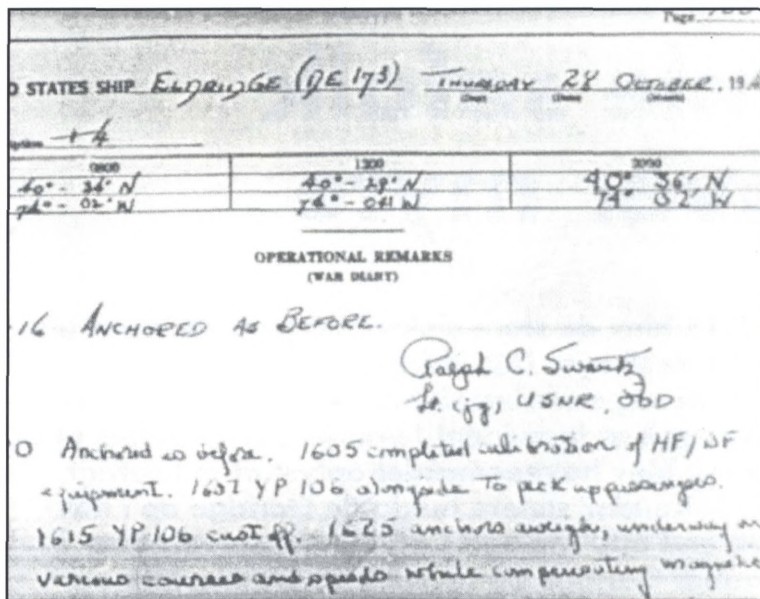 Page
D STATES SHIP ELDRIDGE (DE 173) THURSDAY 28 OCTOBER, 19
(Day) (Date) (Month)
+4
0800 1200 2000
40° - 36' N 40° - 29' N 40° 36' N
74° - 02' W 74° - 041 W 74° 02' W
OPERATIONAL REMARKS
(WAR DIARY)
-16 ANCHORED AS BEFORE.
Ralph C. Swartz
Lt. (jg), USNR, OOD
0 Anchored as before. 1605 completed calibration of HF/DF
equipment. 1607 YP 106 alongside to pick up passengers.
1615 YP 106 cast off. 1625 anchors aweigh, underway on
various courses and speeds while compensating magnetic